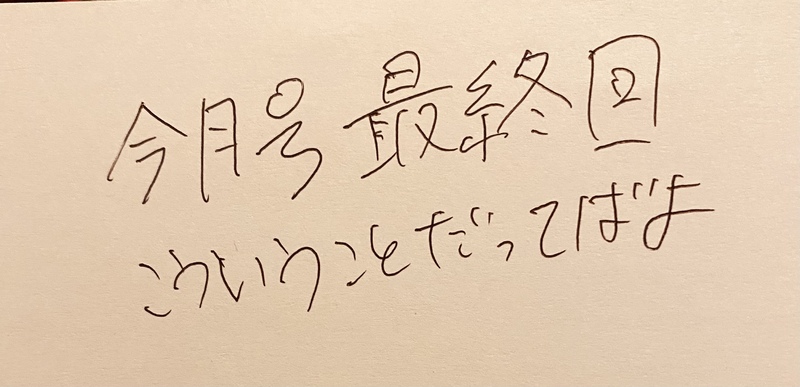 今月号最終回
こういうことだってばよ